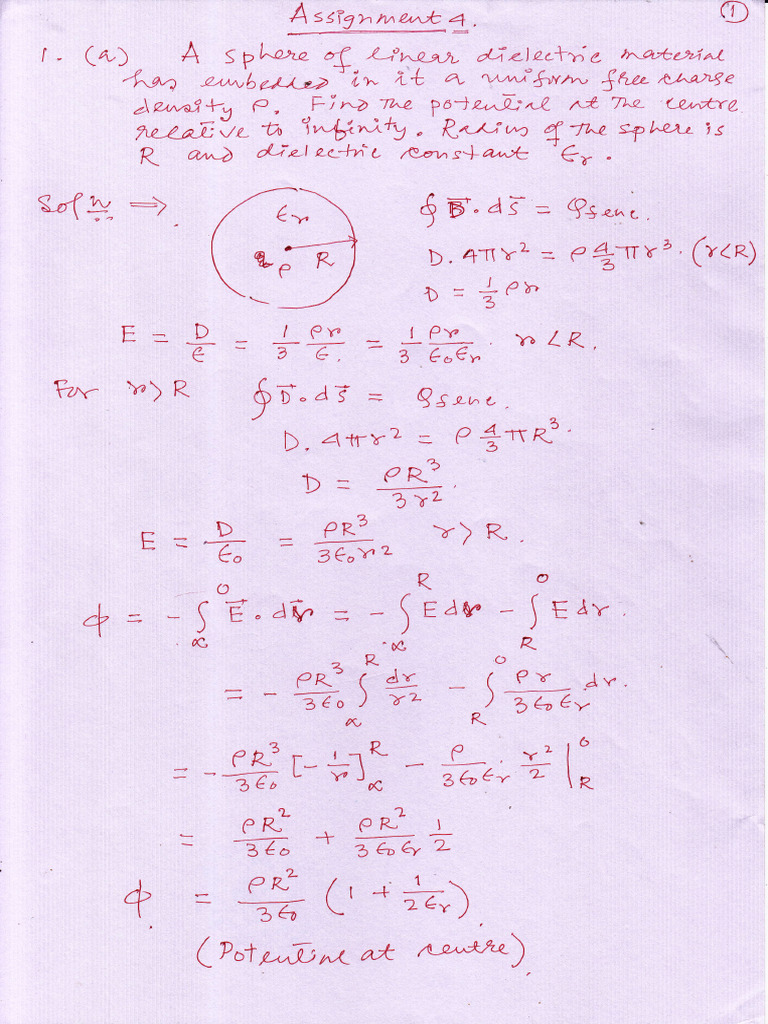 Assignment 4.
①
1. (a) A sphere of linear dielectric material
has embedded in it a uniform free charge
density ρ. Find the potential at the centre
relative to infinity. Radius of the sphere is
R and dielectric constant ϵr.
Solⁿ ⇒
ϵr
ρ R
∮ D⃗·ds⃗ = Qfenc.
D. 4πr² = ρ 4/3 πr³. (r<R)
D = 1/3 ρr
E = D/ϵ = 1/3 ρr/ϵ. = 1/3 ρr/ϵ₀ϵr. r < R.
For r > R ∮ D⃗·ds⃗ = Qfenc.
D. 4πr² = ρ 4/3 πR³.
D = ρR³/3r².
E = D/ϵ₀ = ρR³/3ϵ₀r² r > R.
ϕ = -∫_∝^0 E⃗·dr⃗ = -∫_∝^R E dr - ∫_R^0 E dr.
= - ρR³/3ϵ₀ ∫_∝^R dr/r² - ∫_R^0 ρr/3ϵ₀ϵr dr.
= - ρR³/3ϵ₀ [-1/r]_∝^R - ρ/3ϵ₀ϵr . r²/2 |_R^0
= ρR²/3ϵ₀ + ρR²/3ϵ₀ϵr 1/2
ϕ = ρR²/3ϵ₀ (1 + 1/2ϵr).
(Potential at centre).